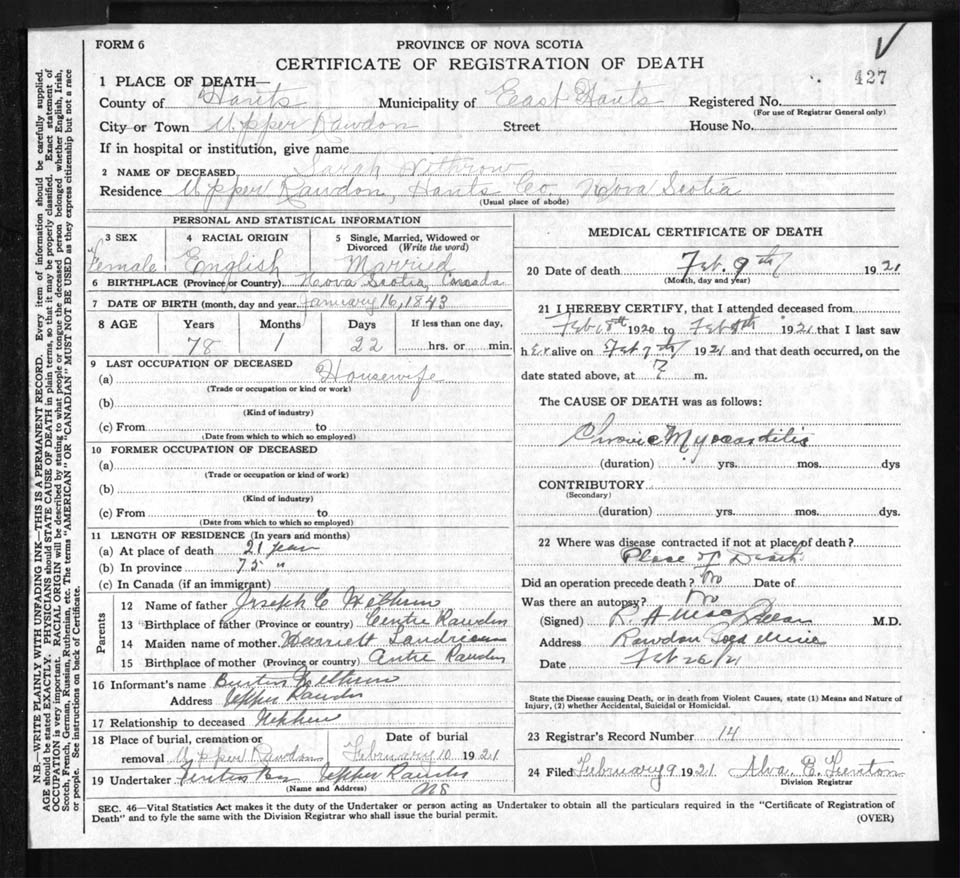 FORM 6
PROVINCE OF NOVA SCOTIA
CERTIFICATE OF REGISTRATION OF DEATH
427
1 PLACE OF DEATH—
County of Hants Municipality of East Hants Registered No.
(For use of Registrar General only)
City or Town Upper Rawdon Street House No.
If in hospital or institution, give name
2 NAME OF DECEASED Sarah Wethrow
Residence Upper Rawdon, Hants Co. Nova Scotia
(Usual place of abode)
PERSONAL AND STATISTICAL INFORMATION
3 SEX 4 RACIAL ORIGIN 5 Single, Married, Widowed or Divorced (Write the word)
Female English Married
6 BIRTHPLACE (Province or Country) Nova Scotia, Canada
7 DATE OF BIRTH (month, day and year) January 16, 1843
8 AGE Years Months Days If less than one day,
78 1 22 hrs. or min.
9 LAST OCCUPATION OF DECEASED
(a) Housewife
(Trade or occupation or kind or work)
(b)
(Kind of industry)
(c) From to
(Date from which to which so employed)
10 FORMER OCCUPATION OF DECEASED
(a)
(Trade or occupation or kind of work)
(b)
(Kind of industry)
(c) From to
(Date from which to which so employed)
11 LENGTH OF RESIDENCE (In years and months)
(a) At place of death 21 years
(b) In province 75 "
(c) In Canada (if an immigrant)
Parents
12 Name of father Joseph C Wethrow
13 Birthplace of father (Province or country) Centre Rawdon
14 Maiden name of mother Harriett
15 Birthplace of mother (Province or country) Rawdon
16 Informant's name Burton Wethrow
Address Upper Rawdon
17 Relationship to deceased Nephew
18 Place of burial, cremation or removal Upper Rawdon Date of burial February 10 1921
19 Undertaker Upper Rawdon
(Name and Address) NS
MEDICAL CERTIFICATE OF DEATH
20 Date of death Feb. 9th 1921
(Month, day and year)
21 I HEREBY CERTIFY, that I attended deceased from
Feb 18th 1920 to Feb 8th 1921 that I last saw
her alive on Feb 7th 1921 and that death occurred, on the
date stated above, at ? m.
The CAUSE OF DEATH was as follows:
Chronic Myocarditis
(duration) yrs. mos. dys
CONTRIBUTORY
(Secondary)
(duration) yrs. mos. dys.
22 Where was disease contracted if not at place of death?
Place of Death
Did an operation precede death? No Date of
Was there an autopsy? No
(Signed) R. A. M.D.
Address Rawdon Gold Mines
Date Feb 26/21
State the Disease causing Death, or in death from Violent Causes, state (1) Means and Nature of
Injury, (2) whether Accidental, Suicidal or Homicidal.
23 Registrar's Record Number 14
24 Filed February 9 1921 Alva E. Fenton
Division Registrar
SEC. 46—Vital Statistics Act makes it the duty of the Undertaker or person acting as Undertaker to obtain all the particulars required in the "Certificate of Registration of
Death" and to fyle the same with the Division Registrar who shall issue the burial permit.
(OVER)
N.B.—WRITE PLAINLY WITH UNFADING INK—THIS IS A PERMANENT RECORD. Every item of information should be carefully supplied.
AGE should be stated EXACTLY. PHYSICIANS should STATE CAUSE OF DEATH in plain terms, so that it may be properly classified. Exact statement of
OCCUPATION is very important. RACIAL ORIGIN will be described by stating to what people or tongue the deceased person belonged, whether English, Irish,
Scotch, French, German, Russian, Ruthenian, etc. The terms "AMERICAN" OR "CANADIAN" MUST NOT BE USED as they express citizenship but not a race
or people. See instructions on back of Certificate.